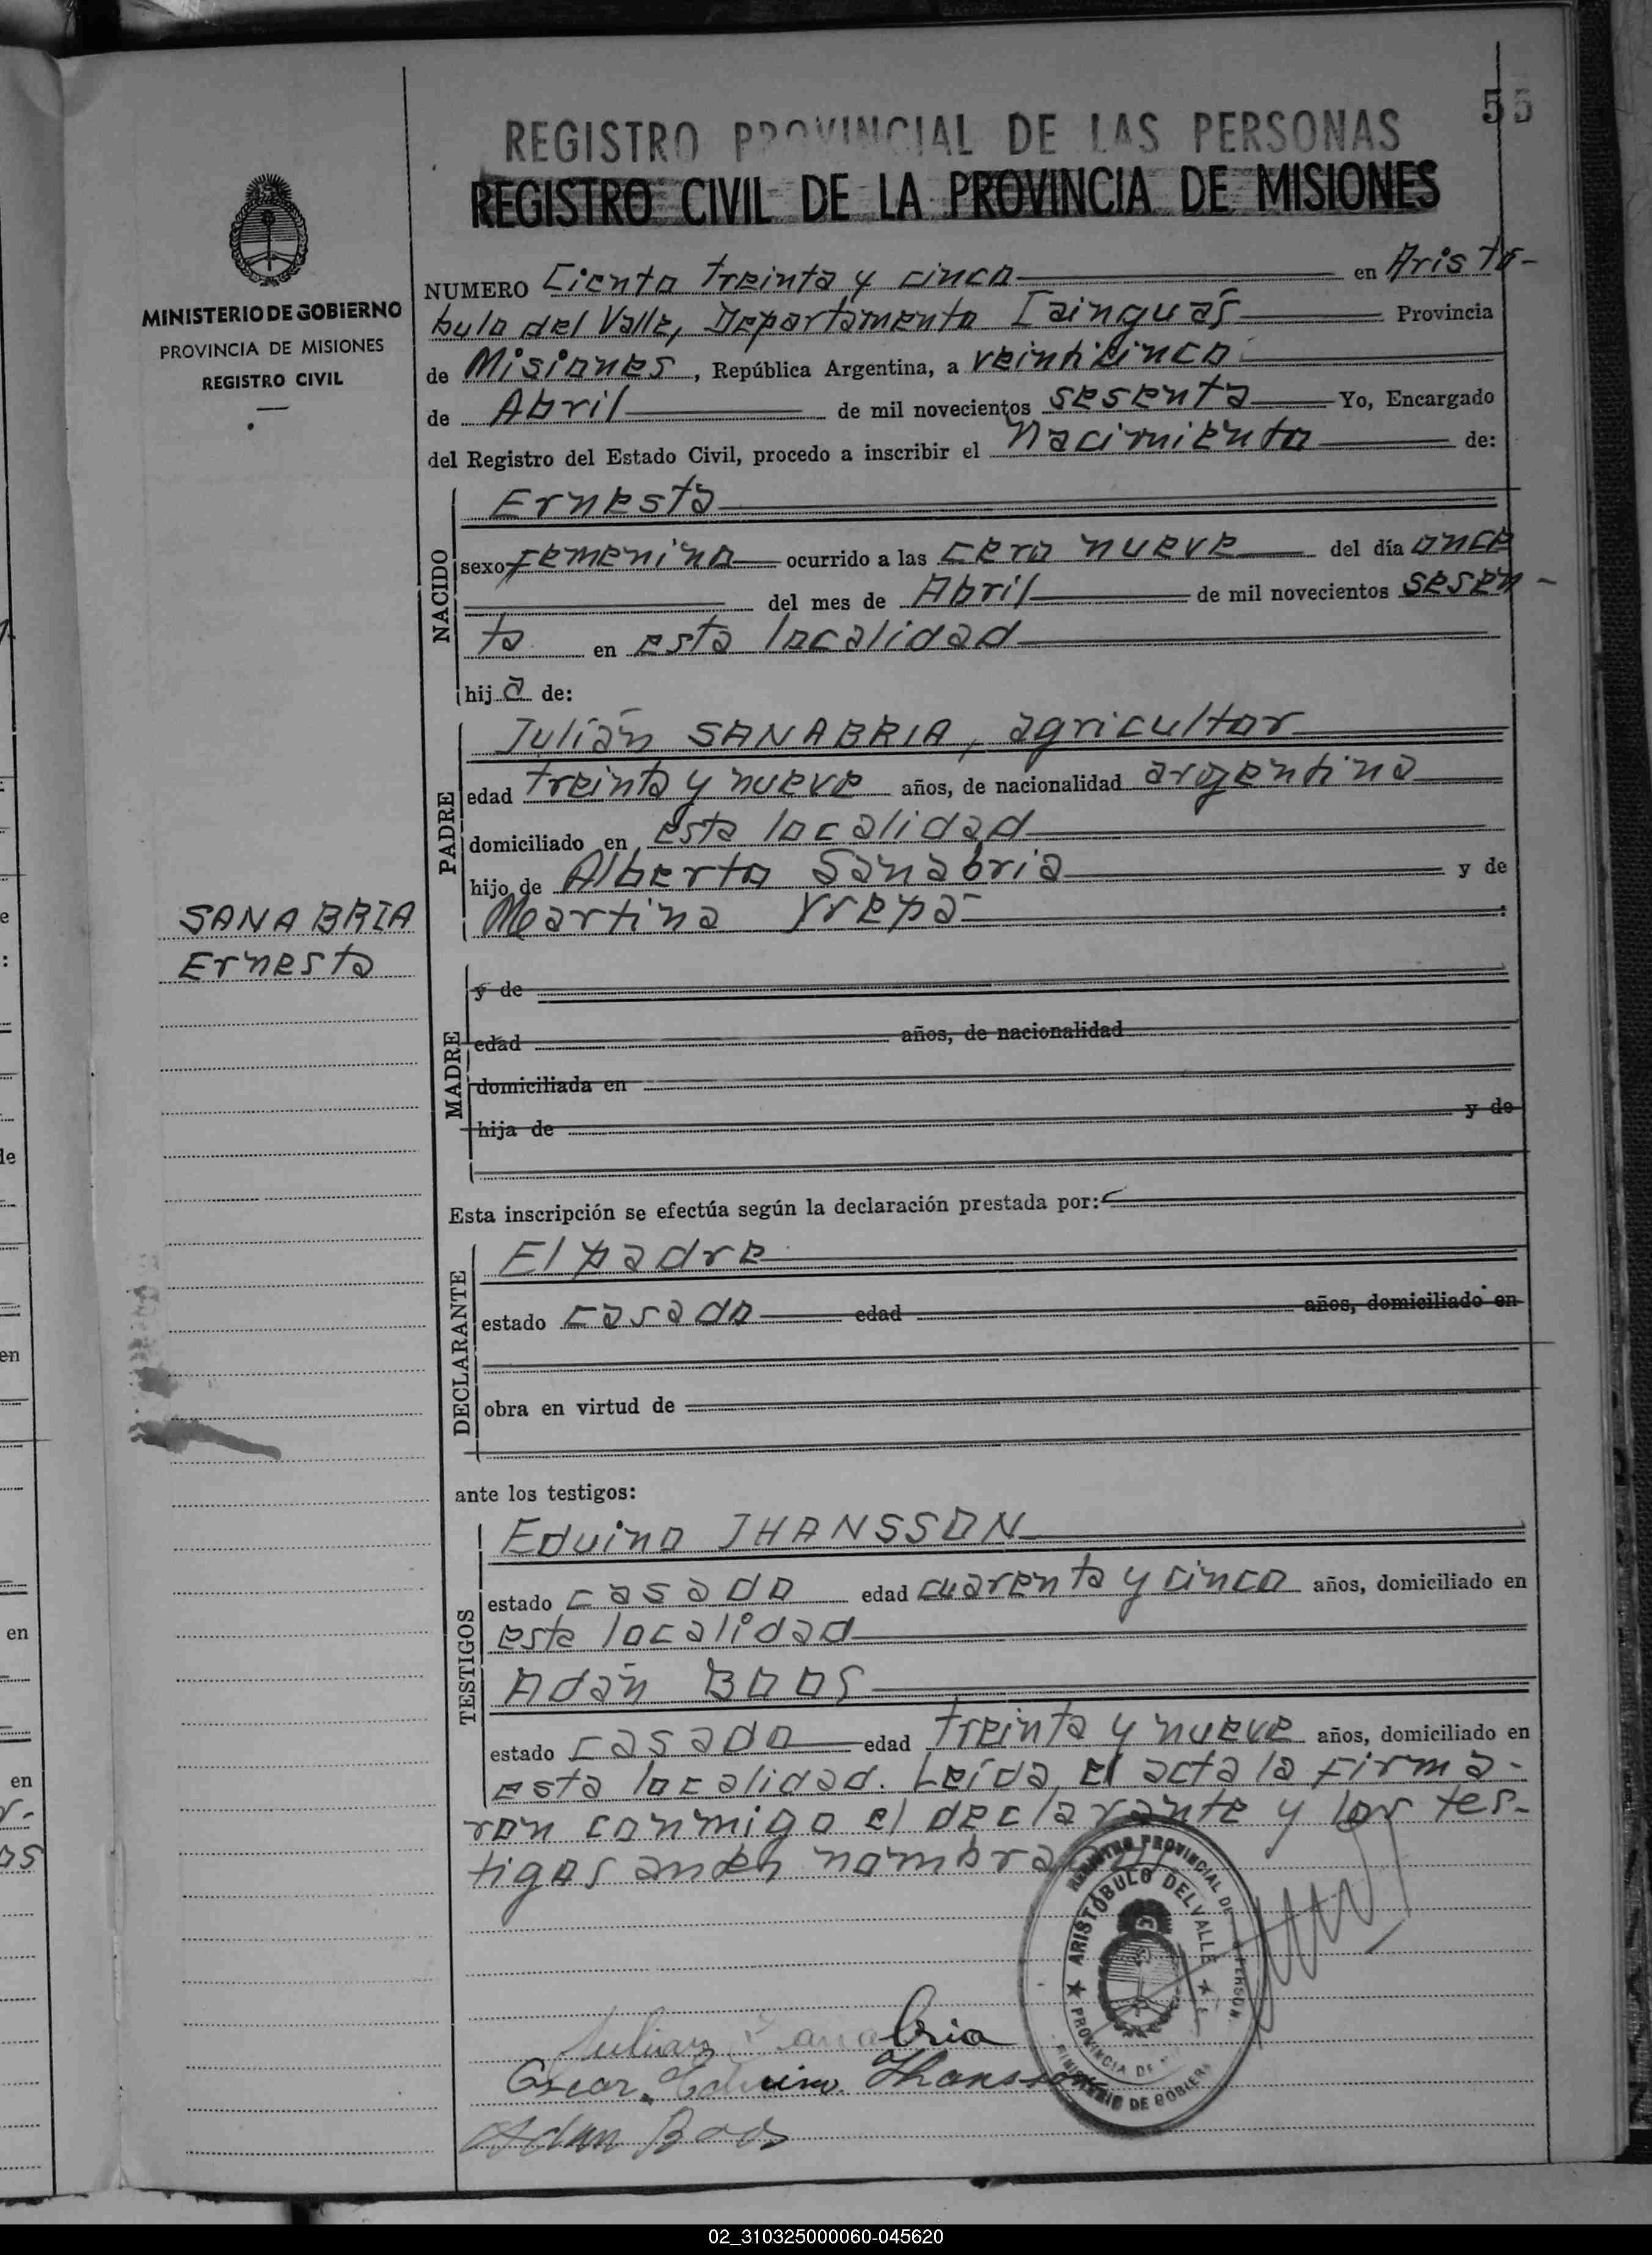 55
REGISTRO PROVINCIAL DE LAS PERSONAS
REGISTRO CIVIL DE LA PROVINCIA DE MISIONES
MINISTERIO DE GOBIERNO
PROVINCIA DE MISIONES
REGISTRO CIVIL
NUMERO Ciento treinta y cinco en Aristó-
bulo del Valle, Departamento Cainguás Provincia
de Misiones, República Argentina, a veinticinco
de Abril de mil novecientos sesenta Yo, Encargado
del Registro del Estado Civil, procedo a inscribir el Nacimiento de:
NACIDO
Ernesta
sexo femenino ocurrido a las cero nueve del día once
del mes de Abril de mil novecientos sesen-
ta en esta localidad
hija de:
PADRE
Julián SANABRIA, agricultor
edad treinta y nueve años, de nacionalidad argentina
domiciliado en esta localidad
hijo de Alberto Sanabria y de
Martina Yrepa
SANABRIA
Ernesta
MADRE
y de
edad años, de nacionalidad
domiciliada en
hija de y de
Esta inscripción se efectúa según la declaración prestada por:
DECLARANTE
El padre
estado casado edad años, domiciliado en
obra en virtud de
ante los testigos:
TESTIGOS
Eduino JHANSSON
estado casado edad cuarenta y cinco años, domiciliado en
esta localidad
Adán BOOS
estado casado edad treinta y nueve años, domiciliado en
esta localidad. Leída el acta la firma-
ron conmigo el declarante y los tes-
tigos
REGISTRO PROVINCIAL DE
ARISTÓBULO DEL VALLE
PROVINCIA DE
MINISTERIO DE GOBIERNO
Julian Sanabria
Oscar Eduino Jhansson
Adan Boos
02_310325000060-045620